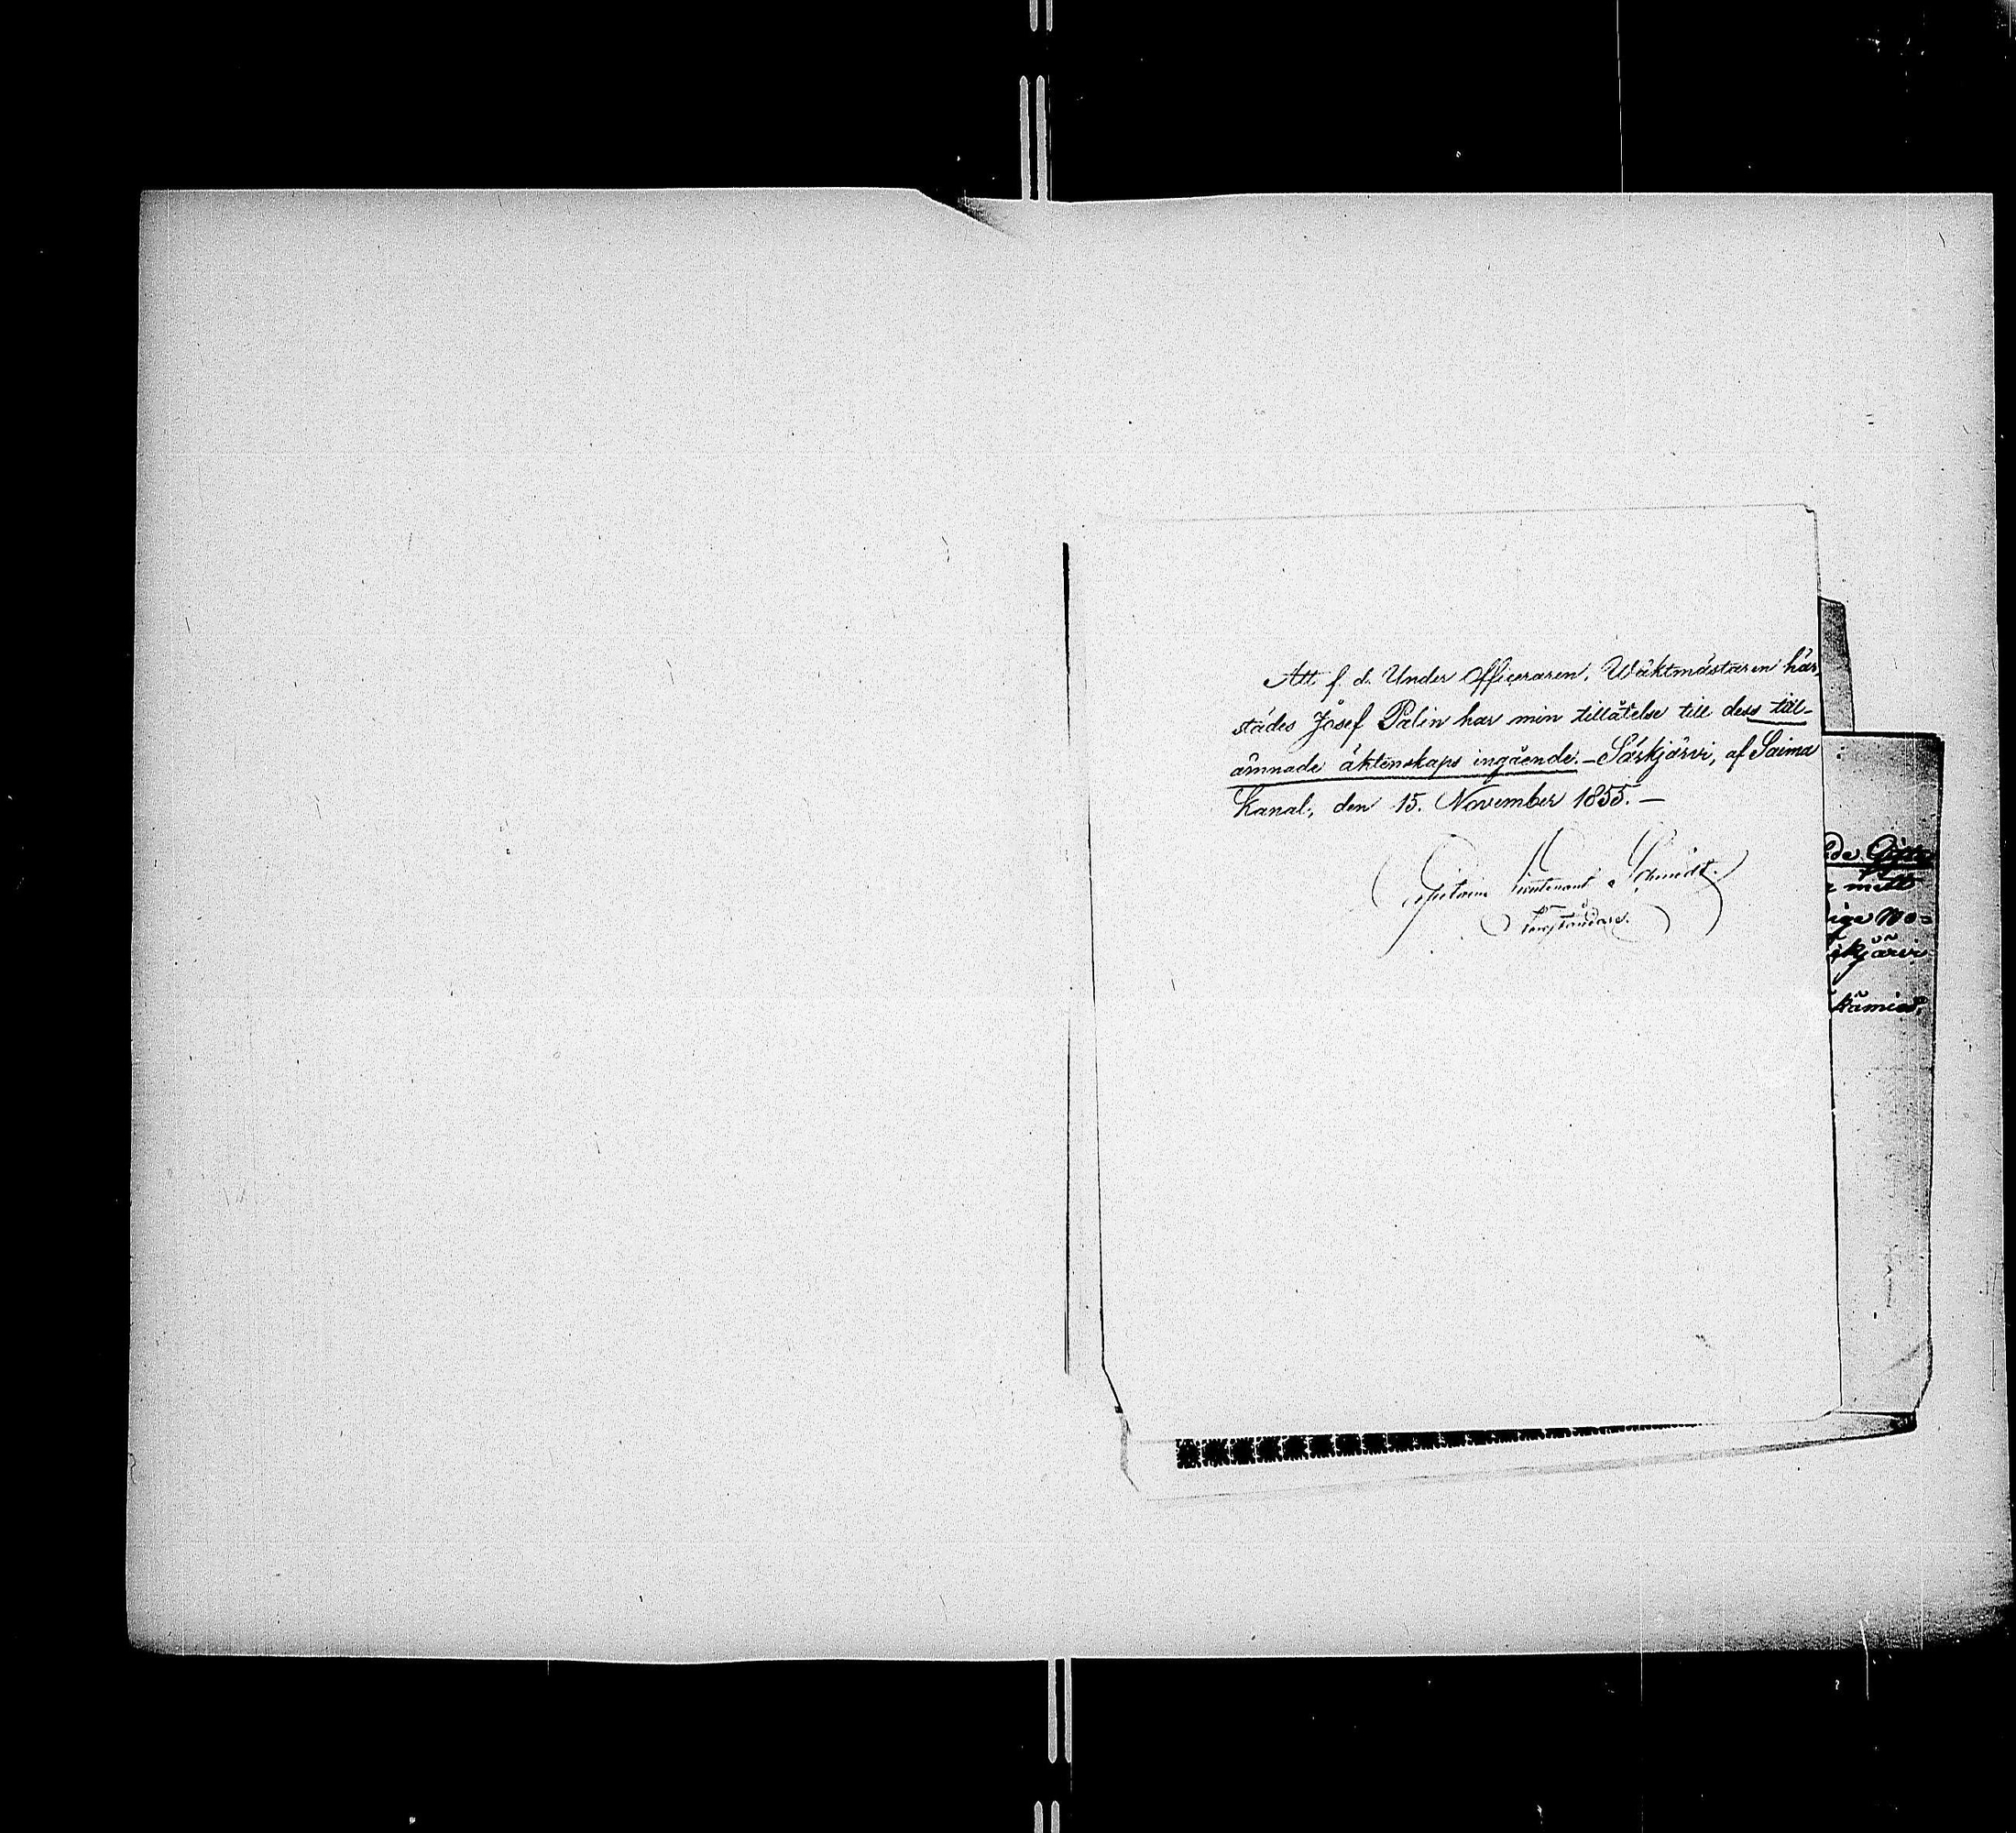 Att f. d. Under Officeraren, Wäktmästaren här-
städes Josef Palin har min tillåtelse till dess till-
ämnade äktenskaps ingående. - Särkjärvi, af Saima
Kanal, den 15. November 1855. -
Capitaine Lieutenant Schmidt.
Föreståndare.
mitt
kjärvi